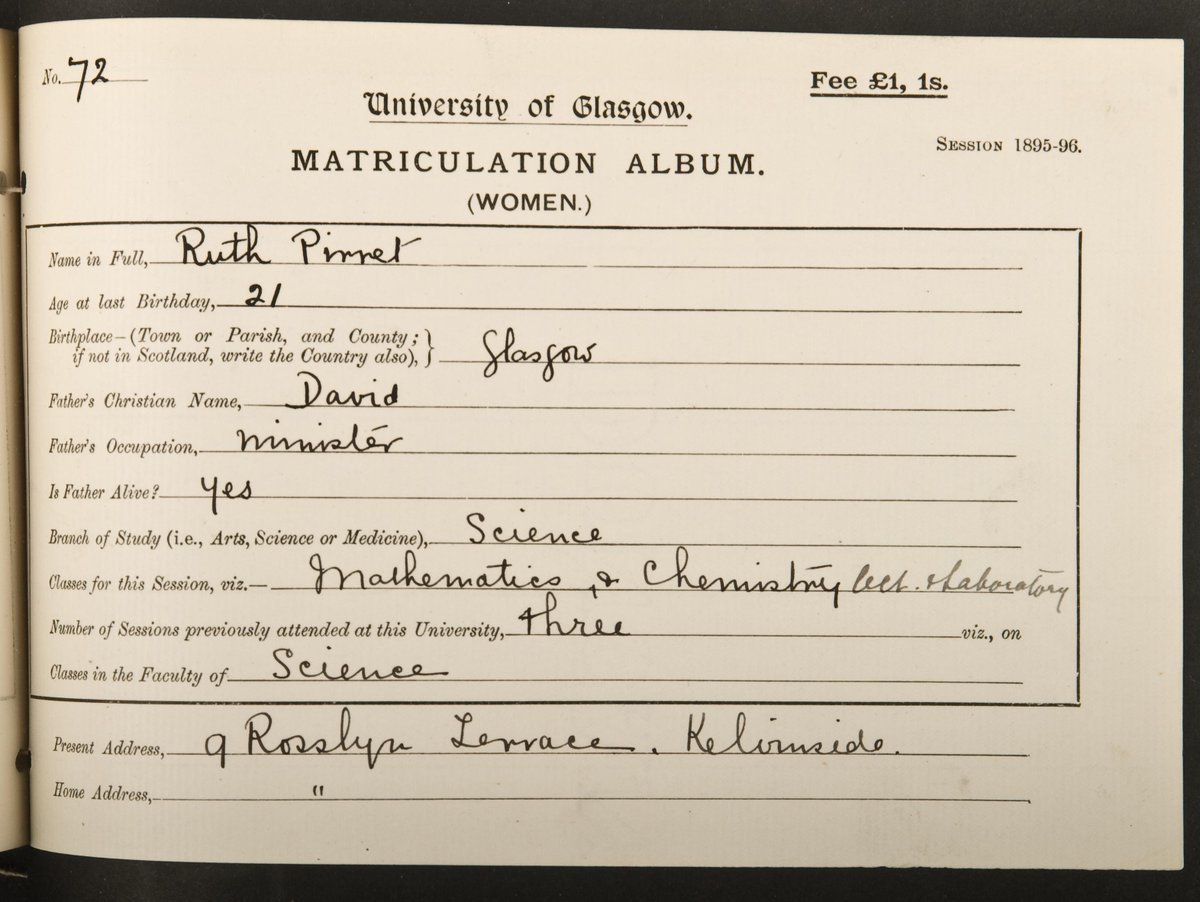 No. 72
Fee £1, 1s.
University of Glasgow.
SESSION 1895-96.
MATRICULATION ALBUM.
(WOMEN.)
Name in Full, Ruth Pirret
Age at last Birthday, 21
Birthplace—(Town or Parish, and County;
if not in Scotland, write the Country also), } Glasgow
Father's Christian Name, David
Father's Occupation, minister
Is Father Alive? yes
Branch of Study (i.e., Arts, Science or Medicine), Science
Classes for this Session, viz.— Mathematics, & Chemistry lect. & Laboratory
Number of Sessions previously attended at this University, three viz., on
Classes in the Faculty of Science
Present Address, 9 Rosslyn Terrace. Kelvinside.
Home Address, "